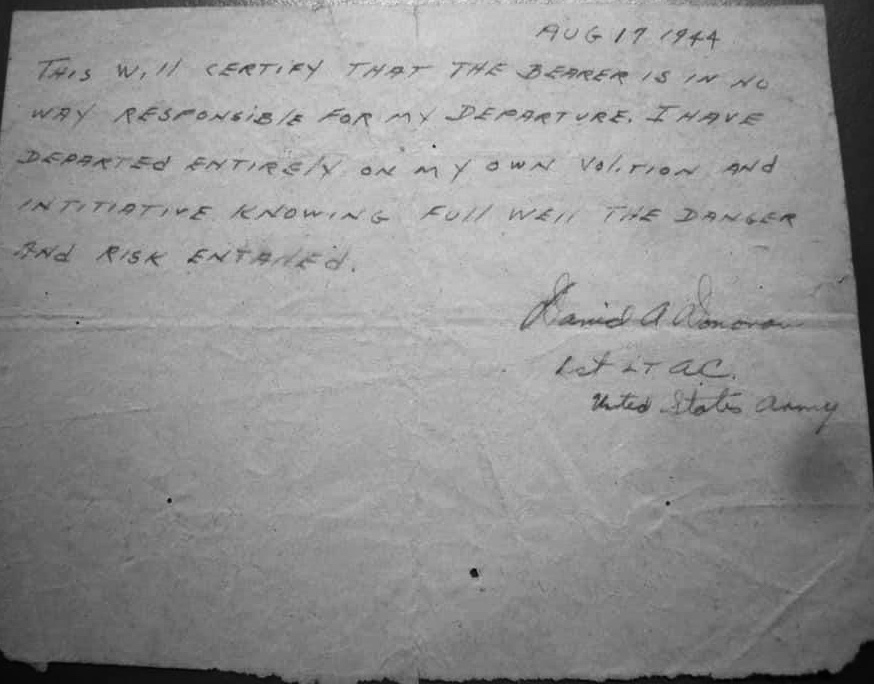 AUG 17 1944
THIS WILL CERTIFY THAT THE BEARER IS IN NO
WAY RESPONSIBLE FOR MY DEPARTURE. I HAVE
DEPARTED ENTIRELY ON MY OWN VOLITION AND
INTITIATIVE KNOWING FULL WELL THE DANGER
AND RISK ENTAILED.
David A Donovan
1st LT A.C.
United States Army